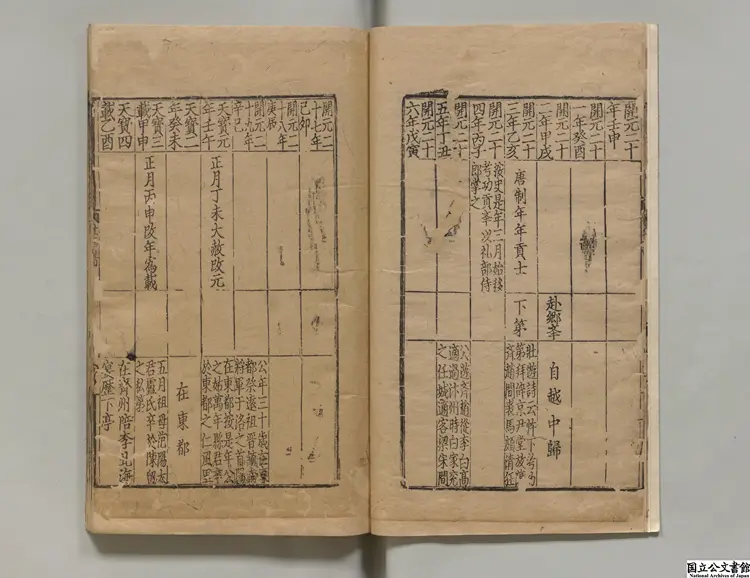 開元二十
年壬申
開元二十
一年癸酉
開元二十
二年甲戌
赴鄉舉
自越中歸
開元二十
三年乙亥
唐制年年貢士
下第
壯遊詩云忤下考功
第拜辭京尹堂放蕩
齊趙間裘馬頗清狂
開元二十
四年丙子
按史是年三月始移
考功貢舉以礼部侍
郎掌之
開元二十
五年丁丑
公遊齊趙從李白高
適過汴州時白家兗
之任城適客梁宋間
開元二十
六年戊寅
開元二
十七年
己卯
開元二
十八年
庚辰
開元二
十九年
辛巳
公年三十歲在東
都祭遠祖晉鎮南
將軍于洛之首陽
天寶元
年壬午
正月丁未大赦改元
在東都按是年公
之姑萬年縣君卒
於東都之仁風里
天寶二
年癸未
在東都
天寶三
載甲申
正月丙申改年為載
五月祖母范陽太
君盧氏卒於陳留
之私第
天寶四
載乙酉
在齊州陪李北海
宴歷下亭
国立公文書館
National Archives of Japan